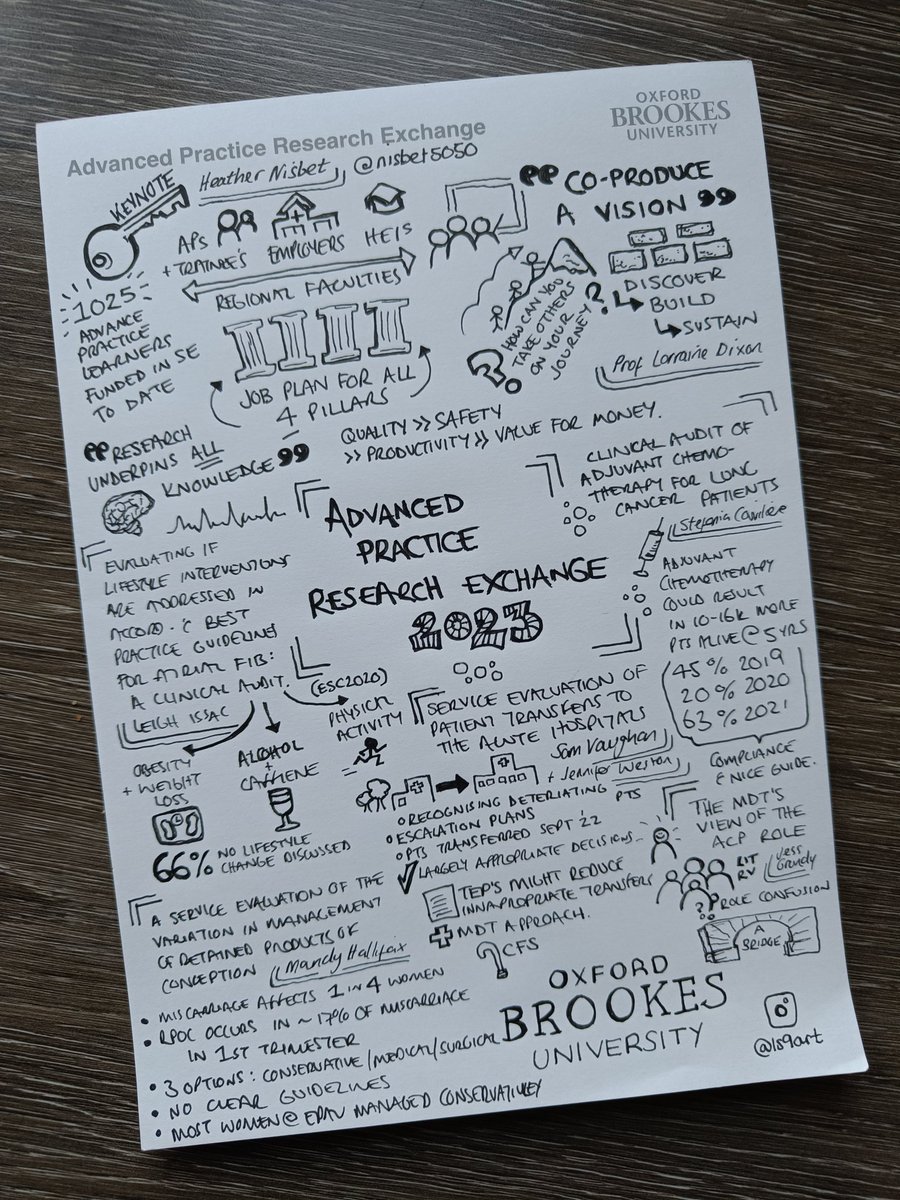 Advanced Practice Research Exchange
OXFORD
BROOKES
UNIVERSITY
KEYNOTE
Heather Nisbet
@nisbet5050
APs
+ TRAINEE'S
EMPLOYERS
HEIs
REGIONAL FACULTIES
1025
ADVANCE
PRACTICE
LEARNERS
FUNDED IN SE
TO DATE
JOB PLAN FOR ALL
4 PILLARS
"CO-PRODUCE
A VISION"
HOW CAN YOU
TAKE OTHERS
ON YOUR
JOURNEY
?
?
DISCOVER
BUILD
SUSTAIN
Prof Lorraine Dixon
QUALITY >> SAFETY
>> PRODUCTIVITY >> VALUE FOR MONEY.
"RESEARCH
UNDERPINS ALL
KNOWLEDGE"
ADVANCED
PRACTICE
RESEARCH EXCHANGE
2023
CLINICAL AUDIT OF
ADJUVANT CHEMO-
THERAPY FOR LUNG
CANCER PATIENTS
Stefania
ADJUVANT
CHEMOTHERAPY
COULD RESULT
IN 10-16% MORE
PTS ALIVE @ 5YRS
45% 2019
20% 2020
63% 2021
COMPLIANCE
NICE GUIDE.
EVALUATING IF
LIFESTYLE INTERVENTIONS
ARE ADDRESSED IN
ACCORD. C BEST
PRACTICE GUIDELINES
FOR ATRIAL FIB:
A CLINICAL AUDIT.
(ESC2020)
LEIGH ISSAC
OBESITY
+ WEIGHT
LOSS
ALCOHOL
+
CAFFIENE
PHYSICAL
ACTIVITY
66% NO LIFESTYLE
CHANGE DISCUSSED
SERVICE EVALUATION OF
PATIENT TRANSFERS TO
THE ACUTE HOSPITALS
Sam Vaughan
+ Jennifer Weston
RECOGNISING DETERIATING PTS
ESCALATION PLANS
PTS TRANSFERRED SEPT '22
LARGELY APPROPRIATE DECISIONS
TEP'S MIGHT REDUCE
INNAPROPRIATE TRANSFERS
MDT APPROACH.
? CFS
THE MDT'S
VIEW OF THE
ACP ROLE
LIT
RV
Jess
Grundy
? ROLE CONFUSION
A
BRIDGE
A SERVICE EVALUATION OF THE
VARIATION IN MANAGEMENT
OF RETAINED PRODUCTS OF
CONCEPTION
Mandy Hallifax
• MISCARRIAGE AFFECTS 1 IN 4 WOMEN
• RPOC OCCURS IN ~17% OF MISCARRIAGE
IN 1ST TRIMESTER
• 3 OPTIONS: CONSERVATIVE/MEDICAL/SURGICAL
• NO CLEAR GUIDELINES
• MOST WOMEN @ EPAU MANAGED CONSERVATIVELY
OXFORD
BROOKES
UNIVERSITY
@ls9art